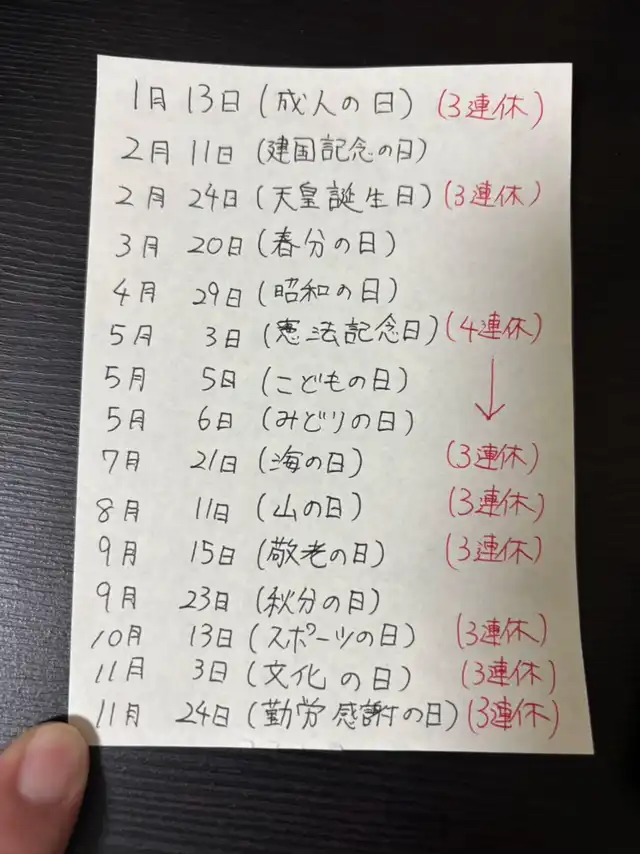 1月 13日 (成人の日) (3連休)
2月 11日 (建国記念の日)
2月 24日 (天皇誕生日) (3連休)
3月 20日 (春分の日)
4月 29日 (昭和の日)
5月 3日 (憲法記念日) (4連休)
5月 5日 (こどもの日) ↓
5月 6日 (みどりの日)
7月 21日 (海の日) (3連休)
8月 11日 (山の日) (3連休)
9月 15日 (敬老の日) (3連休)
9月 23日 (秋分の日)
10月 13日 (スポーツの日) (3連休)
11月 3日 (文化の日) (3連休)
11月 24日 (勤労感謝の日) (3連休)